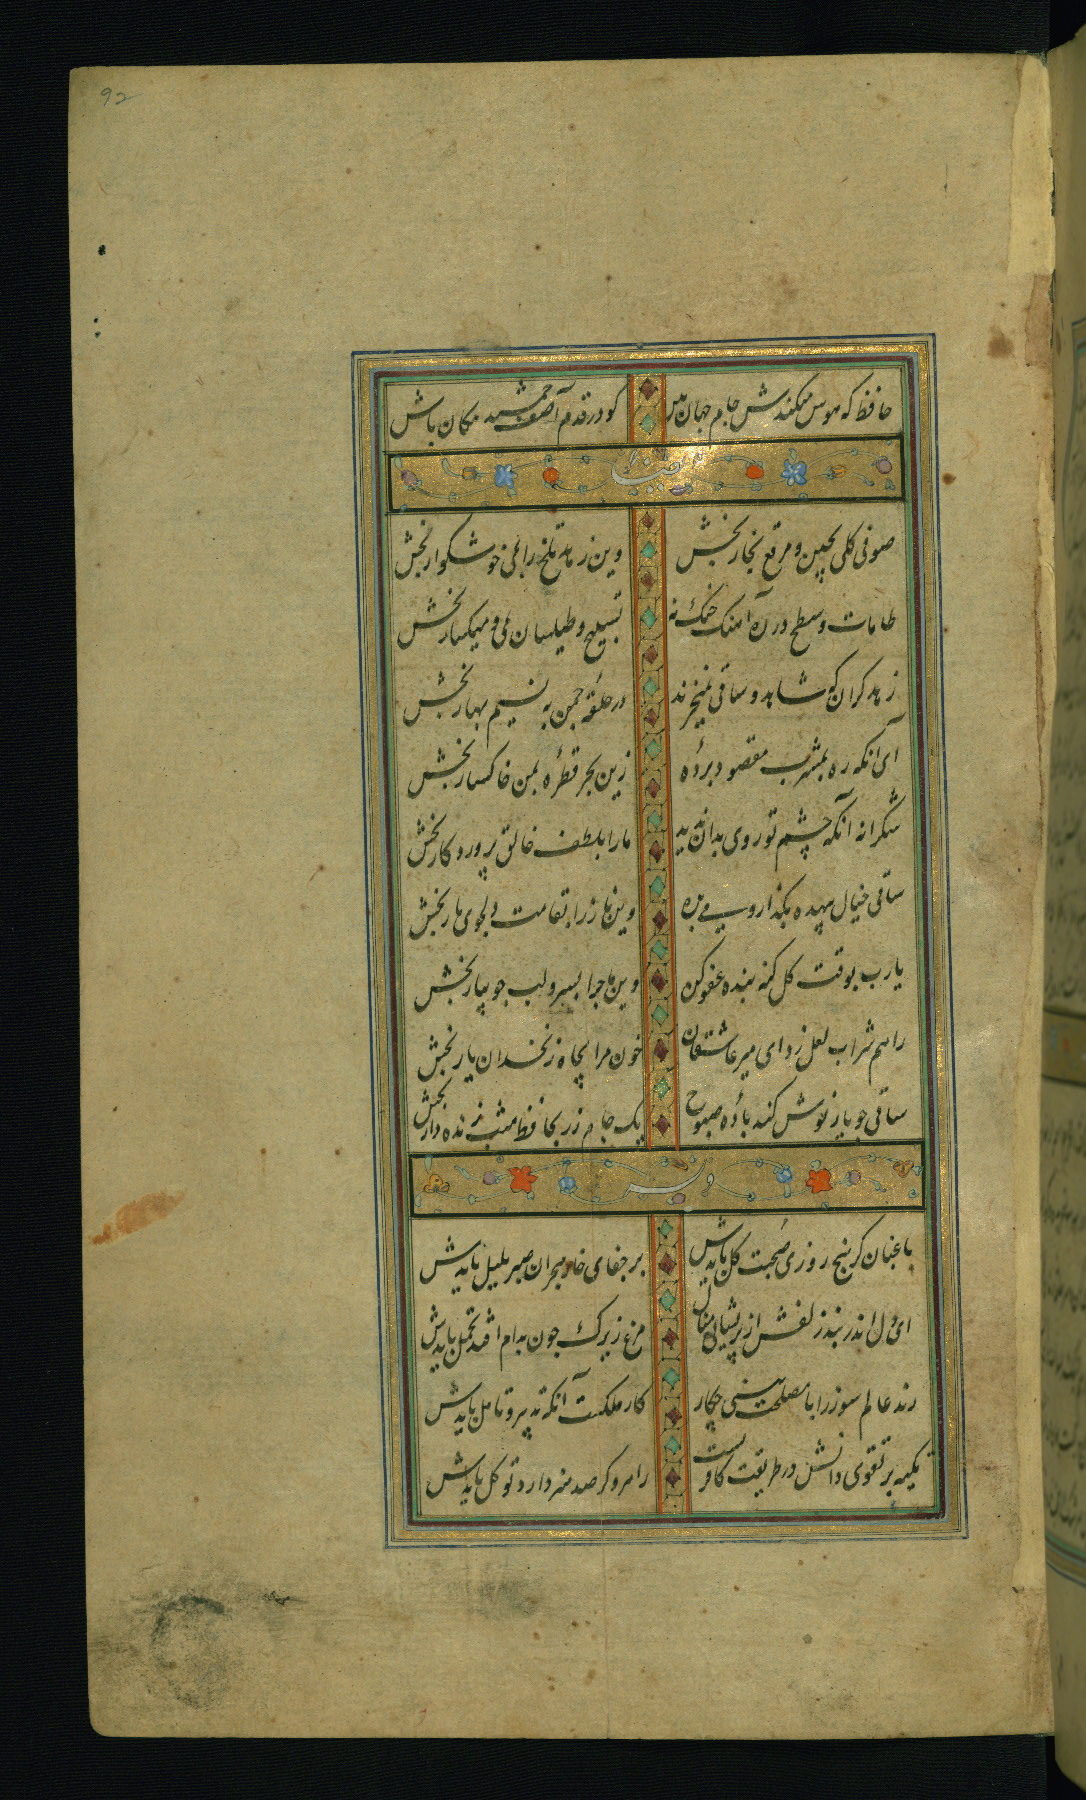 92
حافظ که هوس میکندش جام جهان بین کو در قدم آصف جمشید مکان باش
صوفی کلی بچین و مرقع بخار بخش وین زهد تلخ را بمی خوشکوار بخش
طامات و سطح در ره آهنک خنک نه تسبیح و طیلسان بمی و میکسار بخش
زهد کران که شاهد و ساقی نمیخرند در حلقه چمن به نسیم بهار بخش
ای آنکه ره بمشرب مقصود برده زین بحر قطره بمن خاکسار بخش
شکرانه آنکه چشم تو روی بدان ندید ما را بلطف خالق پروردکار بخش
ساقی خیال بیهده بکذار و می بده وین ناز را بقامت دلجوی یار بخش
یا رب بوقت کل کنه بنده عفو کن وین ماجرا بسرو لب جویبار بخش
راهم شراب لعل زد ای میر عاشقان خون مرا بچاه زنخدان یار بخش
ساقی جو یار نوش کند باده صبوح یک جام زر بحافظ شب زنده دار بخش
باغبان کر پنج روزی صحبت کل بایدش بر جفای خار هجران صبر بلبل بایدش
ای دل اندر بند زلفش از پریشانی منال مرغ زیرک جون بدام افتد تحمل بایدش
رند عالم سوز را با مصلحت بینی چکار کار ملکست آنکه تدبیر و تامل بایدش
تکیه بر تقوی و دانش در طریقت کافریست راهرو کر صد هنر دارد توکل بایدش